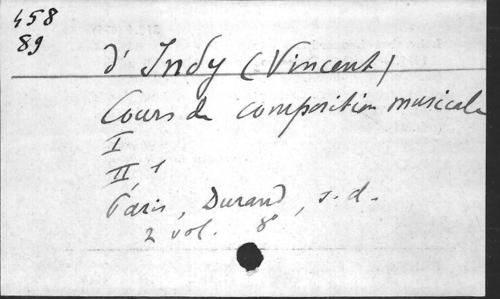 458
89
d'Indy (Vincent)
Cours de composition musicale
I
II, 1
Paris, Durand, s.d.
2 vol. 8°